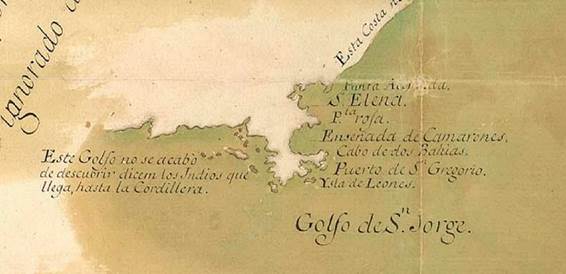 Ignorado
Esta Costa
Punta
S.ta Elena.
P.ta rosa.
Ensenada de Camarones.
Cabo de dos Bahias.
Puerto de S.n Gregorio.
Ysla de Leones.
Este Golfo no se acabó
de descubrir dicem los Indios que
llega, hasta la Cordillera.
Golfo de S.n Jorge.